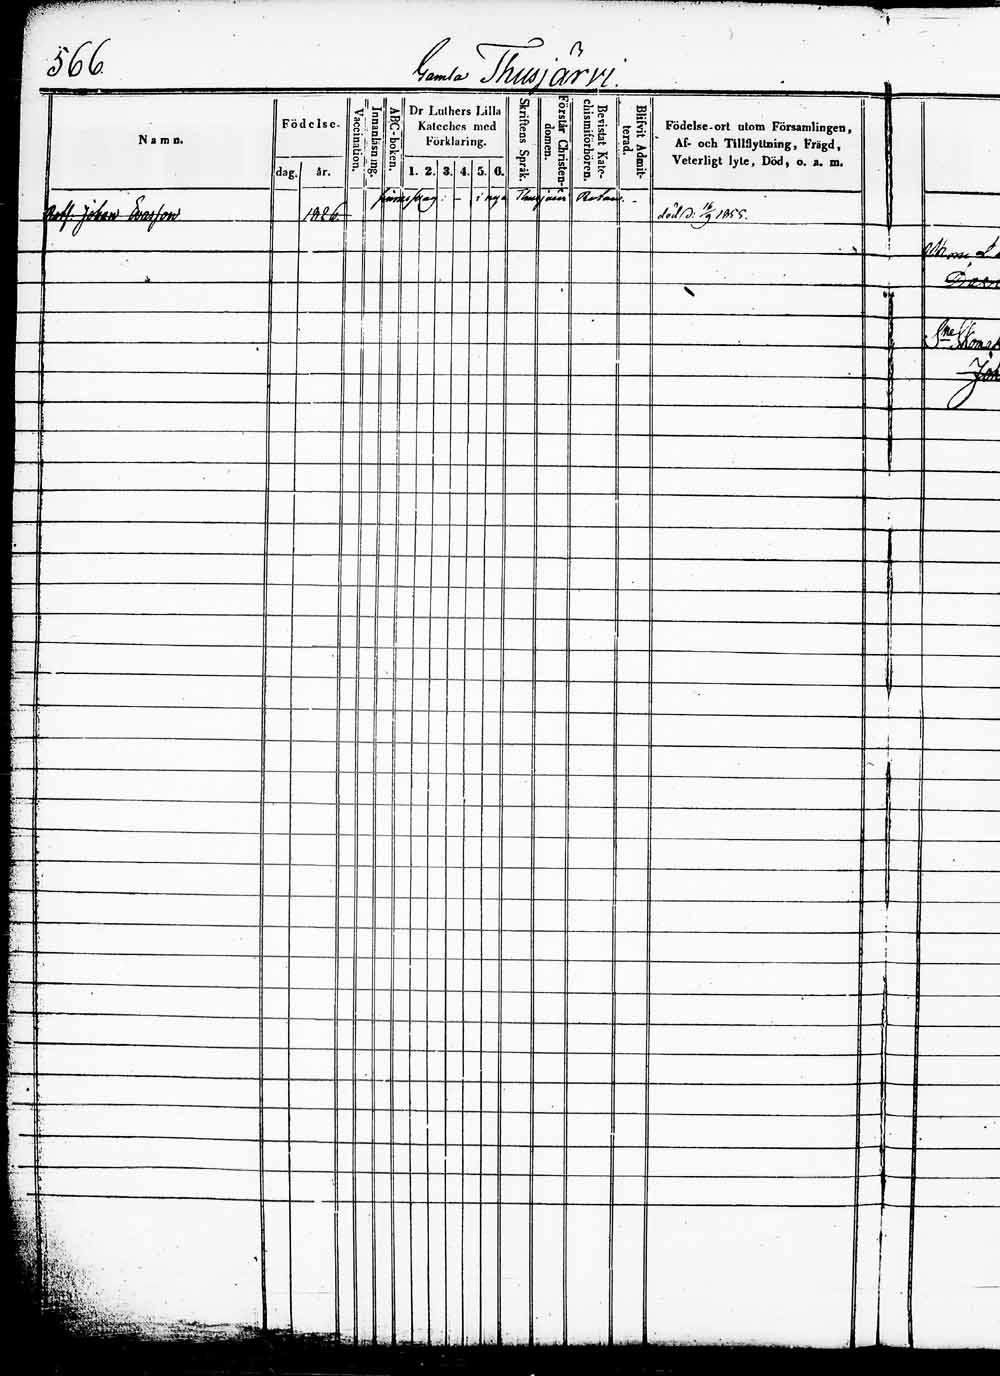 566.
Gamla Thusjärvi.
Namn.
Födelse-
dag. år.
Vaccination.
Innanläsning.
ABC-boken.
Dr Luthers Lilla
Kateches med
Förklaring.
1. 2. 3. 4. 5. 6.
Skriftens Språk.
Förstår Christen-
domen.
Bevistat Kate-
chismiförhören.
Blifvit Admit-
terad.
Födelse-ort utom Församlingen,
Af- och Tillflyttning, Frägd,
Veterligt lyte, Död, o. a. m.
finnes i nya Thusjärvi
Johan 1826 död d. 16/9 1855.